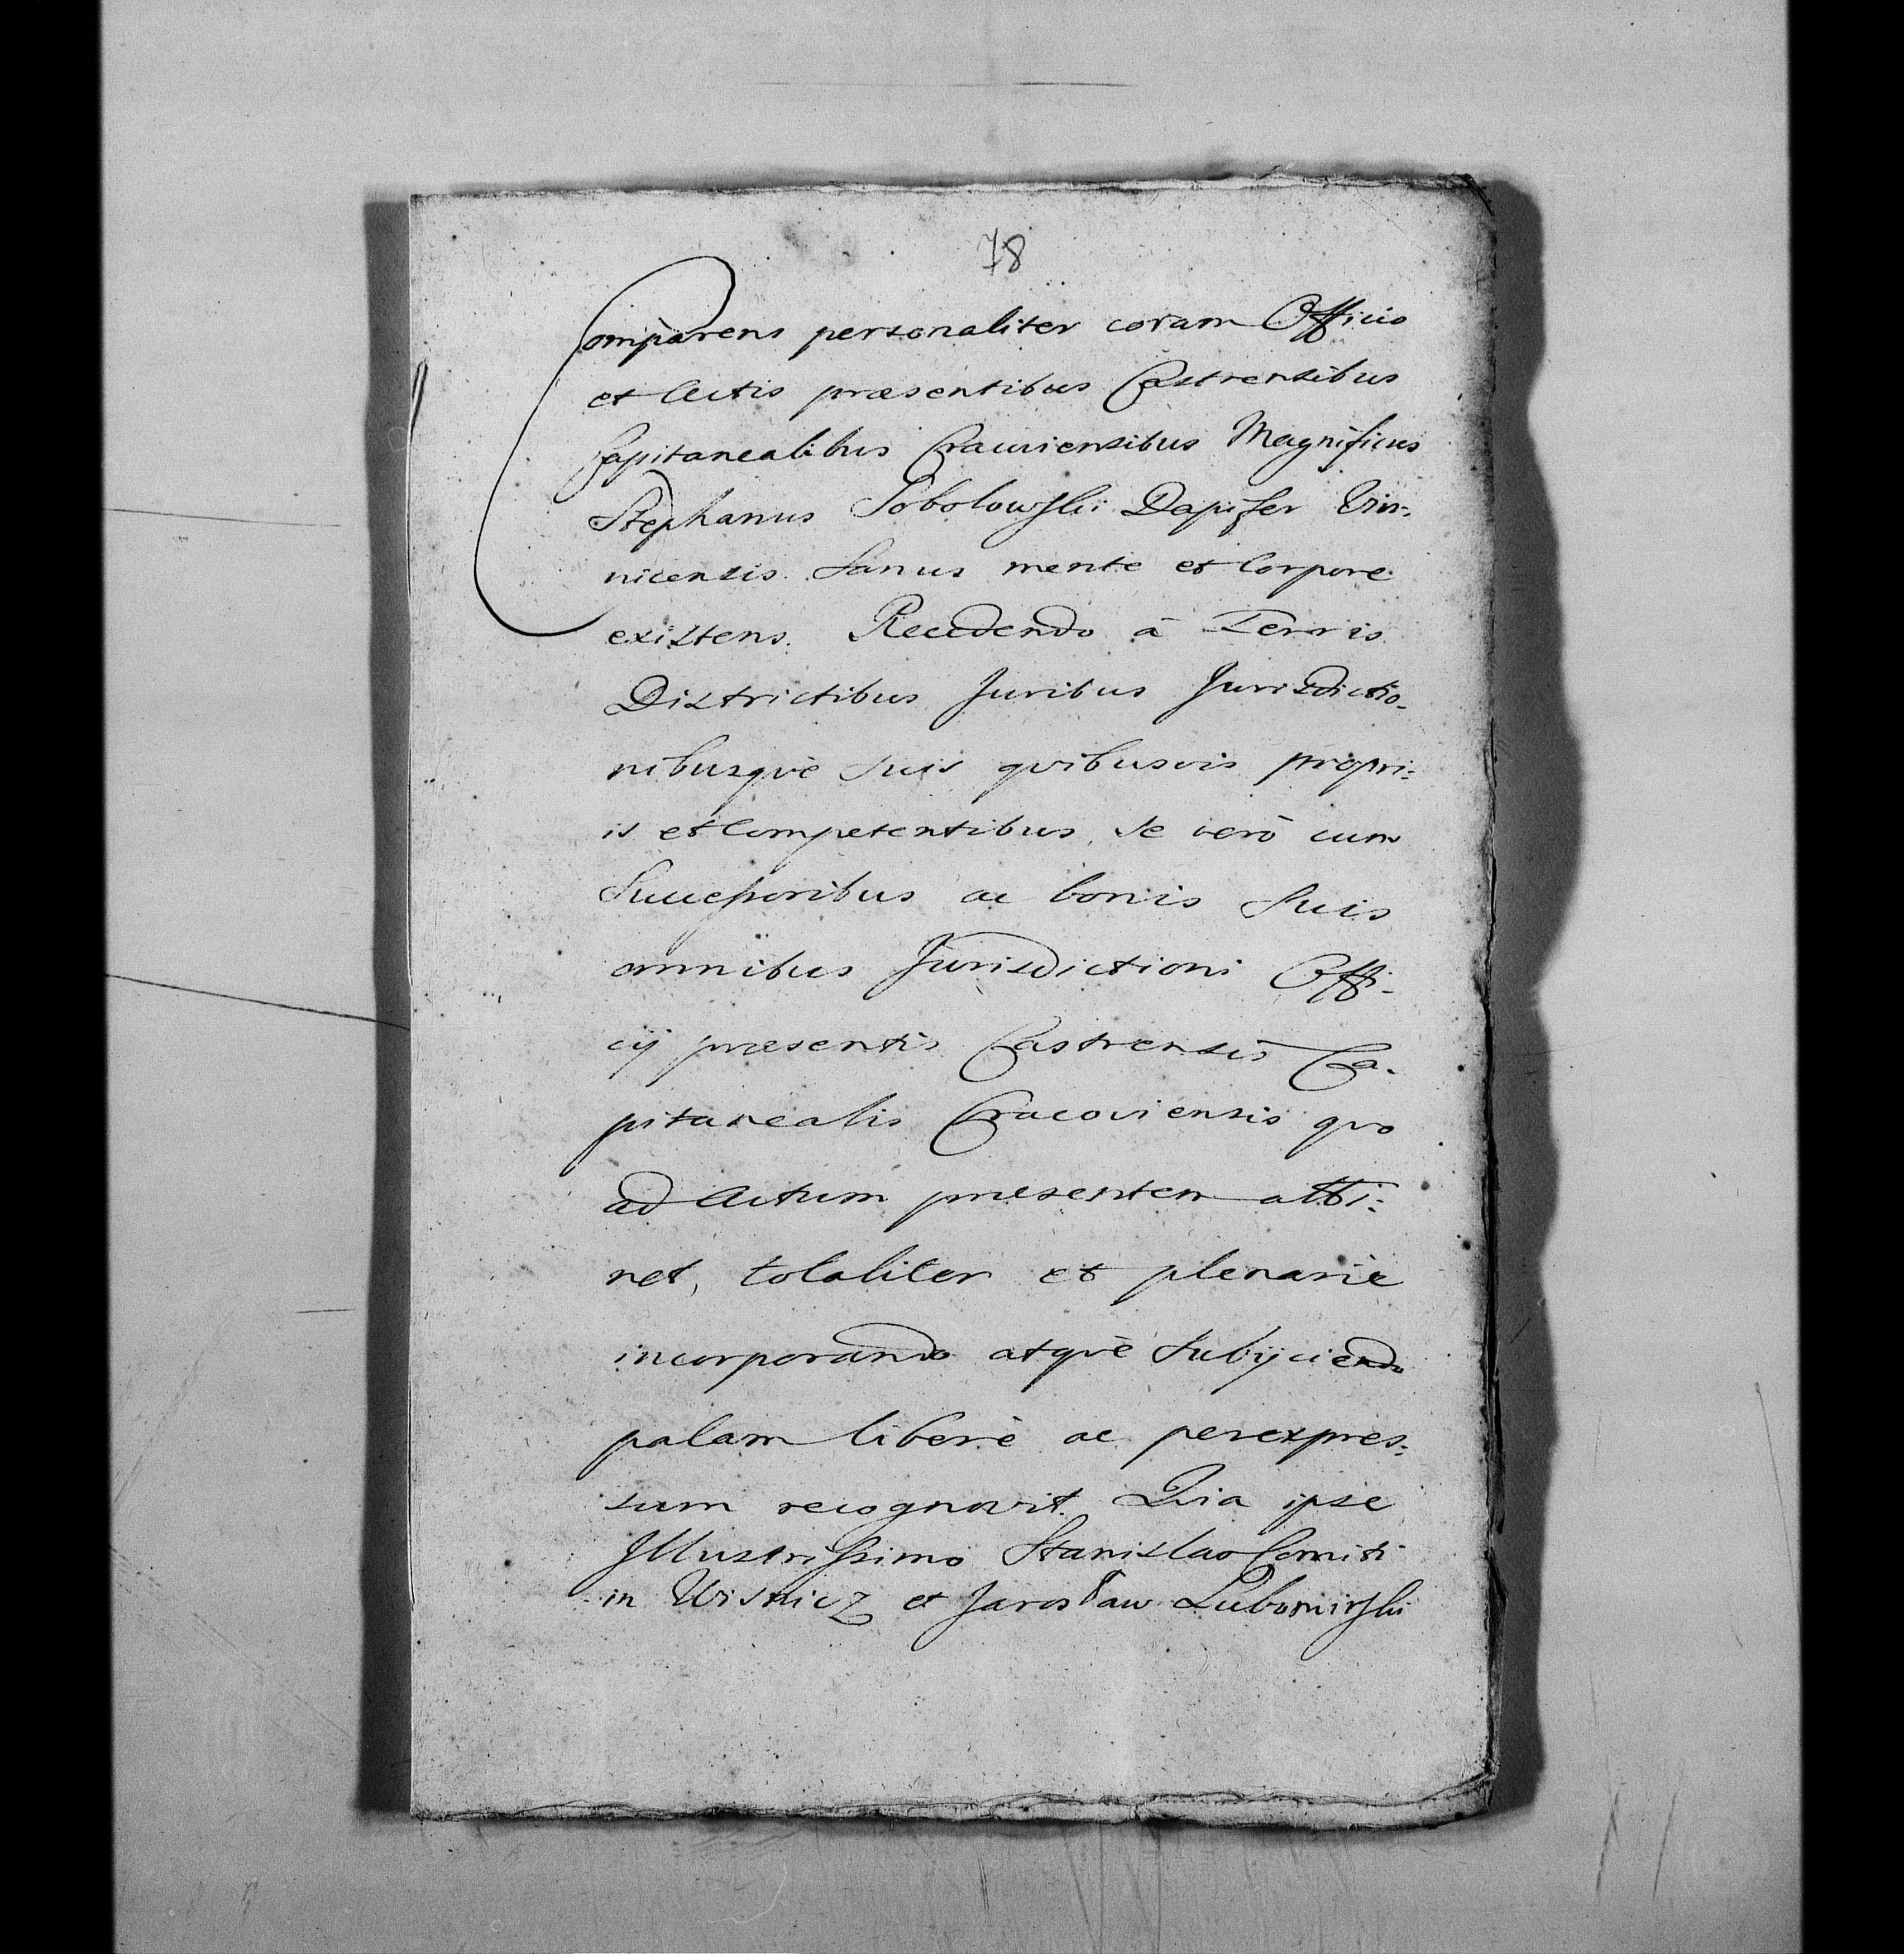 78
Comparens personaliter coram Officio
et Actis præsentibus Castrensibus
Capitanealibus Cracoviensibus Magnificus
Stephanus Sobolowski Dapifer Vin:
nicensis. Sanus mente et Corpore
existens. Recedendo à Terris
Districtibus Juribus Jurisdictio-
nibusquè suis quibusvis propri:
is et Competentibus, se verò cum
Successoribus ac bonis suis
omnibus Jurisdictioni Offi-
cij præsentis Castrensis Ca-
pitanealis Cracoviensis quo
ad Actum præsentem atti:
net, totaliter et plenariè
incorporando atquè subijciendo
palam liberè ac perexpres:
sum recognovit. Quia ipse
Illustrissimo Stanislao Comiti
in Wisnicz et Jarosław Lubomirski